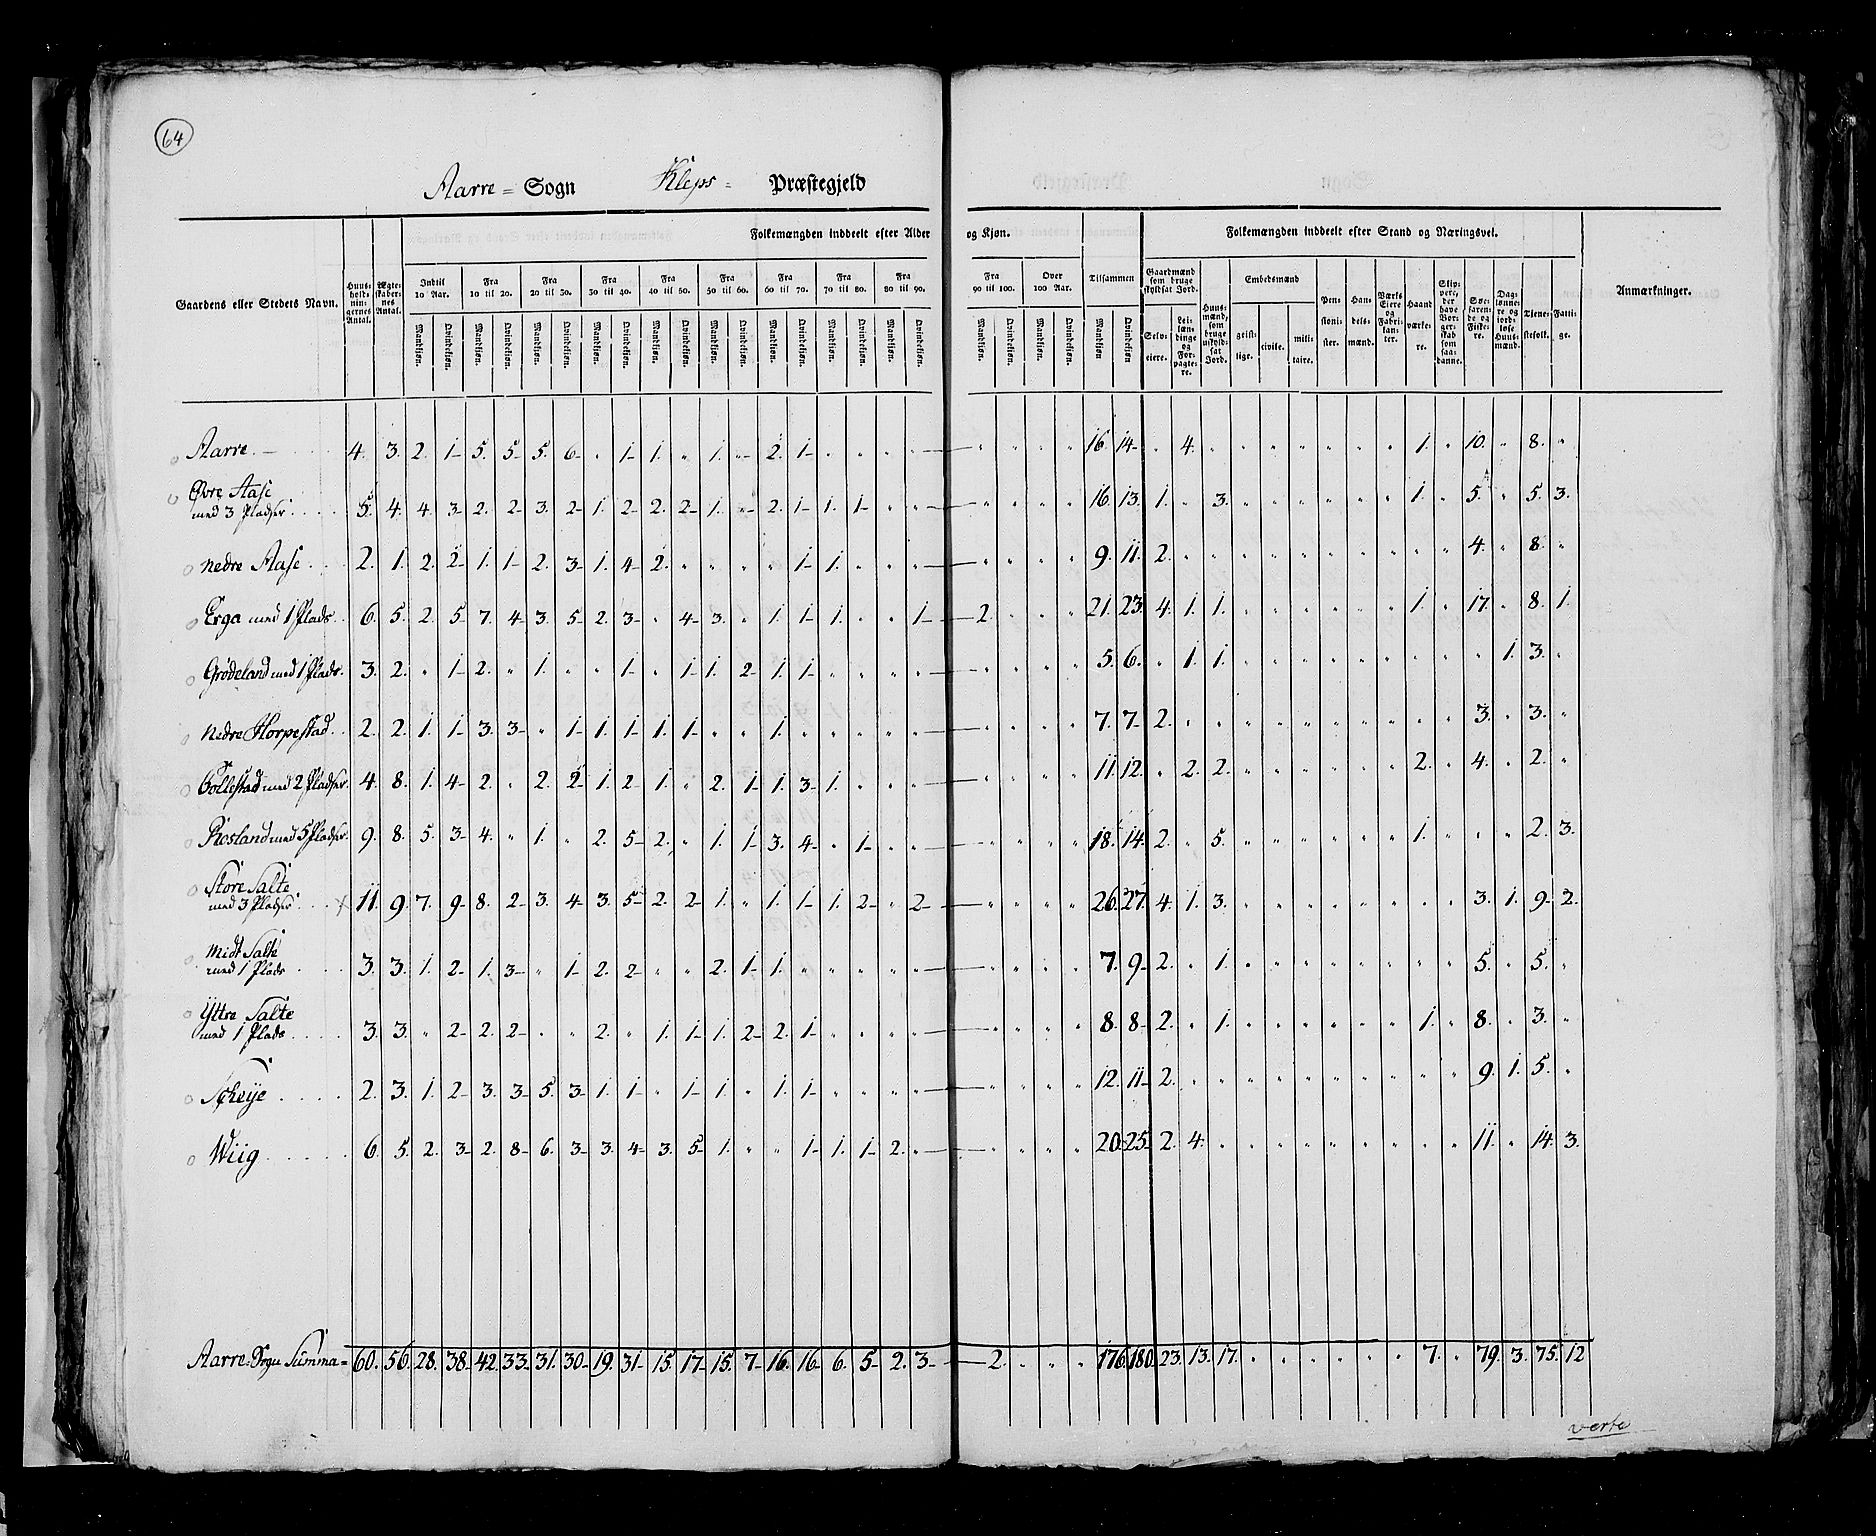 64
Aarre = Sogn Kleps = Præstegjeld
Gaardens eller Stedets Navn. Huus-hold-nin-gernes Antal. Ægte-skaber-nes Antal. Folkemængden inddeelt efter Alder og Kjøn. Tilsammen Folkemængden inddeelt efter Stand og Næringsvei. Anmærkninger.
Indtil 10 Aar. Fra 10 til 20. Fra 20 til 30. Fra 30 til 40. Fra 40 til 50. Fra 50 til 60. Fra 60 til 70. Fra 70 til 80. Fra 80 til 90. Fra 90 til 100. Over 100 Aar.
Mandkjøn. Qvindekjøn. Mandkjøn. Qvindekjøn. Mandkjøn. Qvindekjøn. Mandkjøn. Qvindekjøn. Mandkjøn. Qvindekjøn. Mandkjøn. Qvindekjøn. Mandkjøn. Qvindekjøn. Mandkjøn. Qvindekjøn. Mandkjøn. Qvindekjøn. Mandkjøn. Qvindekjøn. Mandkjøn. Qvindekjøn. Mandkjøn Qvindekjøn
Gaardmænd som bruge skyldsat Jord. Selv-eiere. Lei-læn-dinge og For-pagte-re. Huus-mænd, som bruge uskyld-sat Jord. Embedsmænd geist-lige. civile. mili-taire. Pen-sioni-ster. Han-dels-mænd. Værks Eiere og Fabri-kan-ter. Haand værke-re. Skip-pere, der have Bor-ger-skab som saa-danne. Søe-faren-de og Fiske-re. Dag-lønne-re og jord-løse Huus-mænd. Tjene-stefolk. Fatti-ge.
Aarre. 4. 3. 2. 1- 5. 5- 5. 6- " 1- 1. " 1. "- 2. 1- " " " " " " " " 16. 14- " 4. " " " " " " " 1. " 10. " 8. "
Øvre Aase
med 3 Pladser 5. 4. 4. 3- 2. 2- 3. 2- 1. 2- 2. 2- 1. "- 2. 1- 1. 1- " " " " " " 16. 13. 1. " 3. " " " " " " 1. " 5. " 5. 3.
nedre Aase 2. 1. 2. 2- 1. 1- 2. 3- 1. 4- 2. " " " " 1- 1. " " " " " " " 9. 11. 2. " " " " " " " " " " 4. " 8. "
Erga med 1 Plads 6. 5. 2. 5- 7. 4- 3. 5- 2. 3- " 4- 3. " 1. 1- 1. " " 1- 2. " " " 21. 23. 4. 1. 1. " " " " " " 1. " 17. " 8. 1.
Grødeland med 1 Plads. 3. 2. " 1- 2. " 1. " " 1- " 1- 1. 2- 1. 1- " " " " " " " " 5. 6. " 1. 1. " " " " " " " " " 1. 3. "
nedre Horpestad 2. 2. 1. 1- 3. 3- " 1- 1. 1- 1. 1- " " 1. " " " " " " " " " 7. 7- 2. " " " " " " " " " " 3. " 3. "
Bollestad med 2 Pladser. 4. 8. 1. 4- 2. " 2. 2- 1. 2- 1. " 2. 1- 1. 3- 1. " " " " " " " 11. 12. " 2. 2. " " " " " " 2. " 4. " 2. "
Rosland med 5 Pladser. 9. 8. 5. 3- 4. " 1. " 2. 5- 2. " 1. 1- 3. 4- " 1- " " " " " " 18. 14. 2. " 5. " " " " " " 1. " " " 2. 3.
Store Salte
med 3 Pladser X 11. 9. 7. 9- 8. 2- 3. 4- 3. 5- 2. 2- 1. " 1. 1- 1. 2- " 2- " " " " 26. 27. 4. 1. 3. " " " " " " " " 3. 1. 9- 2.
Midt Salte
med 1 Plads 3. 3. 1. 2- 1. 3- " 1- 2. 2- " " 2. 1- 1. " " " " " " " " " 7. 9- 2. " 1. " " " " " " " " 5. " 5. "
Yttre Salte
med 1 Plads 3. 3. " 2- 2. 2- " " 2. " 1. 1- 1. 2- 2. 1- " " " " " " " " 8. 8- 2. " 1. " " " " " " 1. " 8. " 3. "
Scheije 2. 3. 1. 2- 3. 3- 5. 3- 1. 1- " 1- 1. " 1. 1- " " " " " " " " 12. 11- 2. " " " " " " " " " " 9. 1. 5. "
Wiig 6. 5. 2. 3- 2. 8- 6. 3- 3. 4- 3. 5- 1. " " 1- 1. 1- 2. " " " " " 20. 25. 2. 4. " " " " " " " " " 11. " 14. 3.
Aarre Sogns Summa = 60. 56. 28. 38- 42. 33- 31. 30- 19. 31- 15. 17- 15. 7- 16. 16- 6. 5- 2. 3- 2. " " " 176. 180. 23. 13. 17. " " " " " " 7. " 79. 3. 75. 12
verte